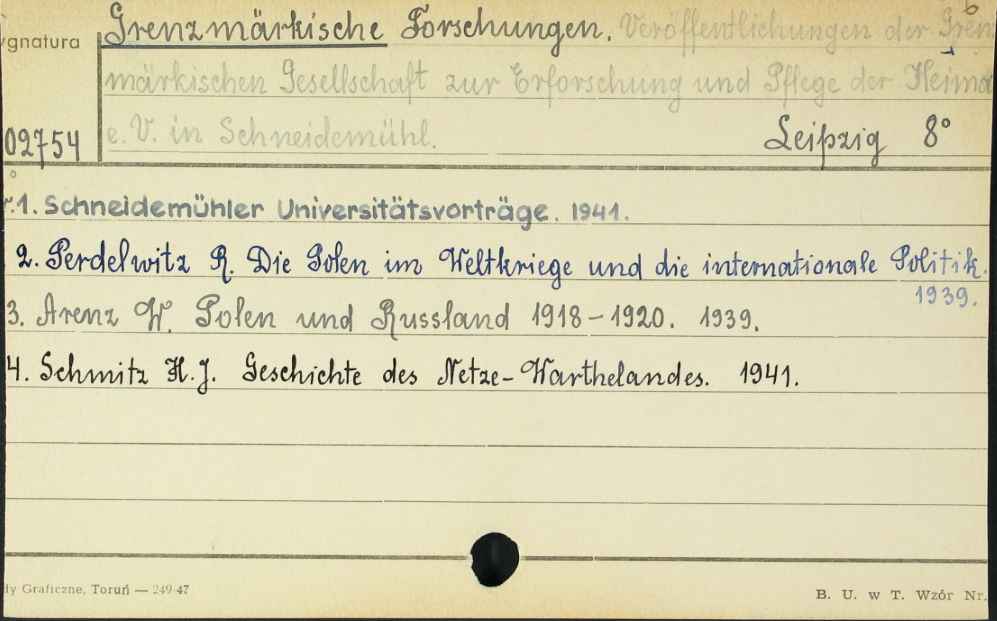 Grenzmärkische Forschungen. Veröffentlichungen der Gren
ygnatura
märkischen Gesellschaft zur Erforschung und Pflege der Heimat
02754
e. V. in Schneidemühl. Leipzig 8°
r.1. Schneidemühler Universitätsvorträge. 1941.
2. Perdelwitz R. Die Polen im Weltkriege und die internationale Politik.
1939.
3. Arenz W. Polen und Russland 1918-1920. 1939.
4. Schmitz H.J. Geschichte des Netze-Warthelandes. 1941.
dy Graficzne, Toruń — 249 47
B. U. w T. Wzór Nr.